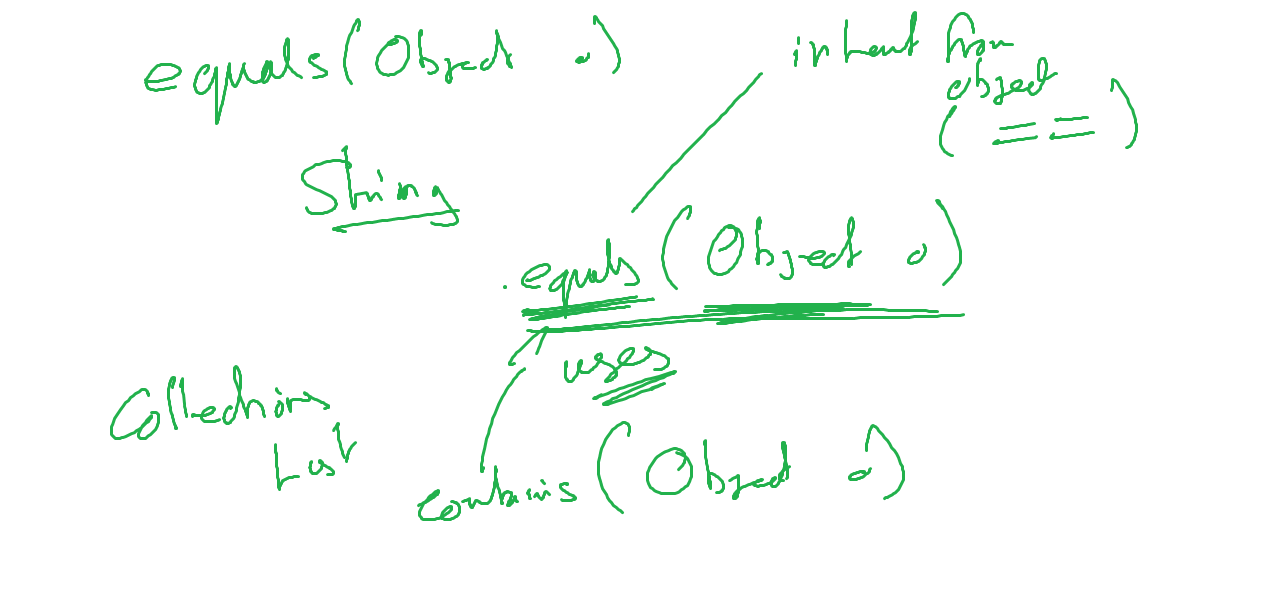 equals(Object o)
inherit from
object
(==)
String
.equals(Object o)
uses
Collections
List
contains(Object o)